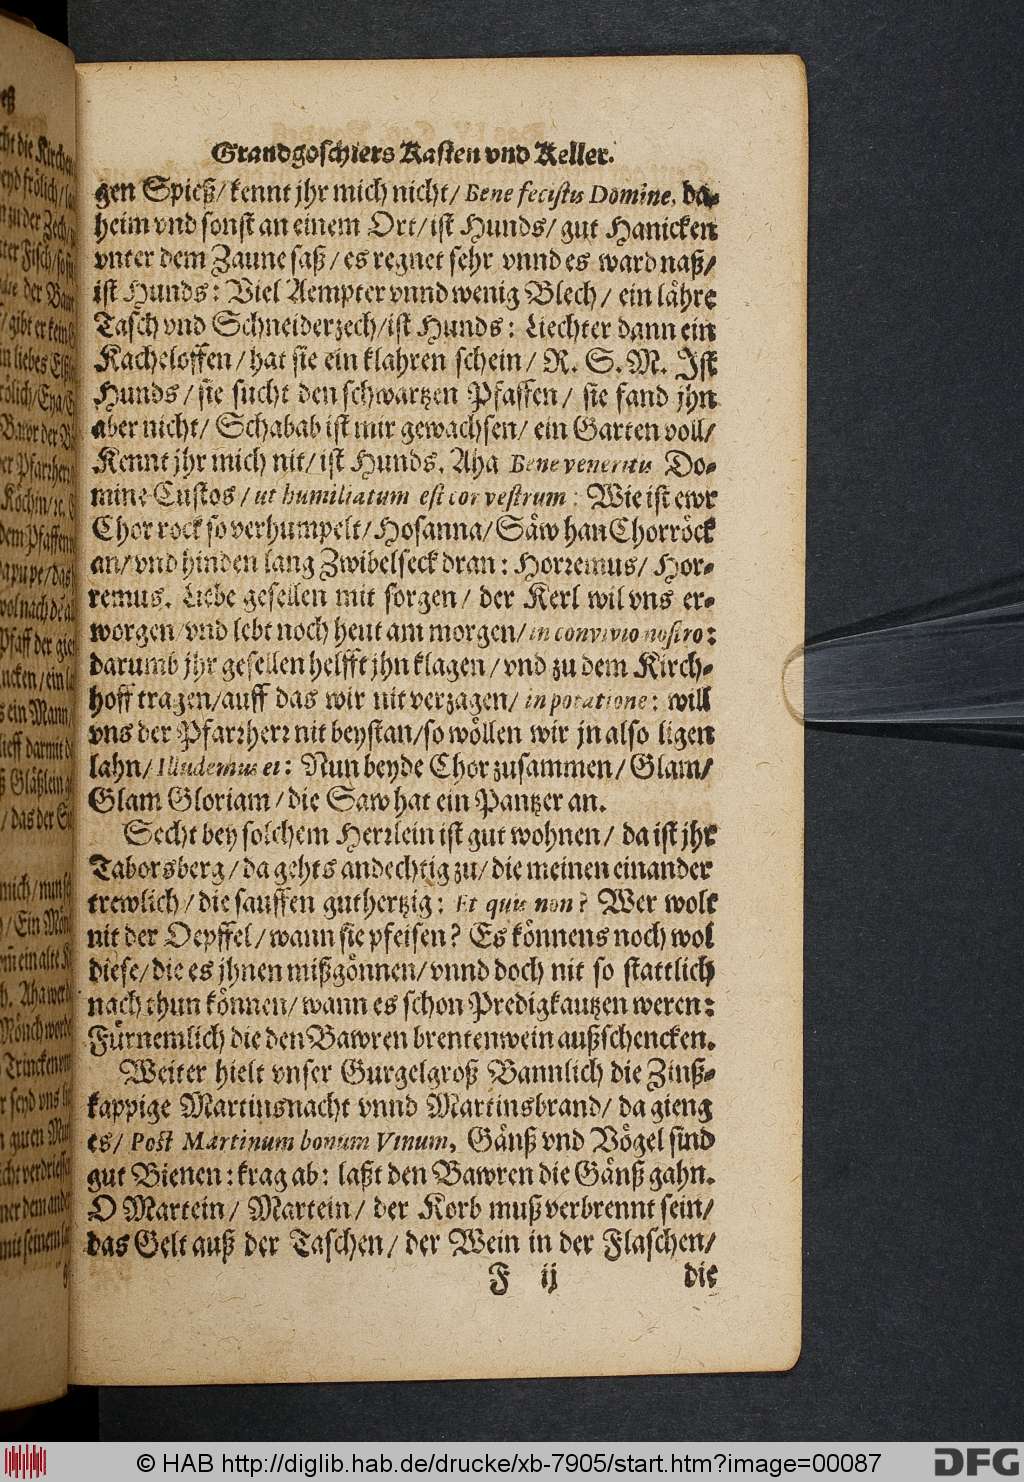 Grandgoschiers Kasten vnd Keller.
gen Spieß/ kennt jhr mich nicht/ Bene fecistis Domine, da-
heim vnd sonst an einem Ort/ ist Hunds/ gut Hanicken
vnter dem Zaune saß/ es regnet sehr vnnd es ward naß/
ist Hunds: Viel Aempter vnnd wenig Blech/ ein lähre
Tasch vnd Schneiderzech/ ist Hunds: Liechter dann ein
Kacheloffen/ hat sie ein klahren schein/ R. S. M. Ist
Hunds/ sie sucht den schwartzen Pfaffen/ sie fand jhn
aber nicht/ Schabab ist mir gewachsen/ ein Garten voll/
Kennt jhr mich nit/ ist Hunds. Aha Bene veneritis Do-
mine Custos/ ut humiliatum est cor vestrum: Wie ist ewr
Chor rock so verhumpelt/ Hosanna/ Säw han Chorröck
an/ vnd hinden lang Zwibelseck dran: Horremus/ Hor-
remus. Liebe gesellen mit sorgen/ der Kerl wil vns er-
worgen/ vnd lebt noch heut am morgen/ in convivio nostro:
darumb jhr gesellen helfft jhn klagen/ vnd zu dem Kirch-
hoff tragen/ auff das wir nit verzagen/ in potatione: will
vns der Pfarrherr nit beystan/ so wöllen wir jn also ligen
lahn/ Illudemus ei: Nun beyde Chor zusammen/ Glam/
Glam Gloriam/ die Saw hat ein Pantzer an.
Secht bey solchem Herrlein ist gut wohnen/ da ist jhr
Taborsberg/ da gehts andechtig zu/ die meinen einander
trewlich/ die sauffen guthertzig: Et quis non? Wer wolt
nit der Oepffel/ wann sie pfeisen? Es könnens noch wol
diese/ die es jhnen mißgönnen/ vnnd doch nit so stattlich
nach thun können/ wann es schon Predigkautzen weren:
Fürnemlich die den Bawren brentenwein außschencken.
Weiter hielt vnser Gurgelgroß Bannlich die Zinß-
kappige Martinsnacht vnnd Martinsbrand/ da gieng
es/ Post Martinum bonum Vinum, Gänß vnd Vögel sind
gut Bienen: krag ab: laßt den Bawren die Gänß gahn.
O Martein/ Martein/ der Korb muß verbrennt sein/
das Gelt auß der Taschen/ der Wein in der Flaschen/
F ij die
© HAB http://diglib.hab.de/drucke/xb-7905/start.htm?image=00087
DFG